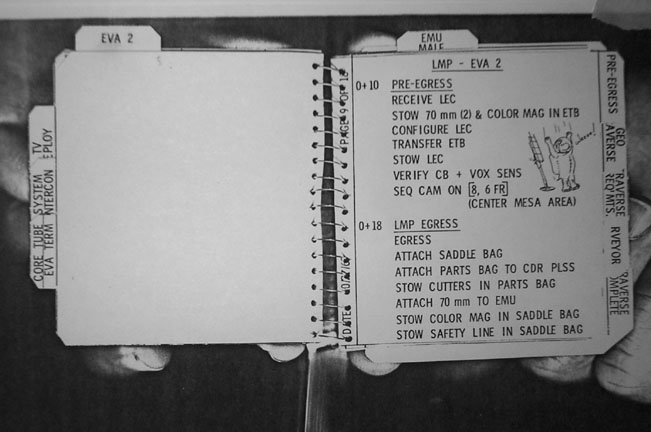 EVA 2
CORE TUBE SYSTEM TV
EVA TERM NTERCON EPLOY
EMU
MALF
PAGE 9 OF 18
DATE
LMP - EVA 2
0+10 PRE-EGRESS
RECEIVE LEC
STOW 70 mm (2) & COLOR MAG IN ETB
CONFIGURE LEC
TRANSFER ETB
STOW LEC
VERIFY CB + VOX SENS
SEQ CAM ON 8, 6 FR
(CENTER MESA AREA)
0+18 LMP EGRESS
EGRESS
ATTACH SADDLE BAG
ATTACH PARTS BAG TO CDR PLSS
STOW CUTTERS IN PARTS BAG
ATTACH 70 mm TO EMU
STOW COLOR MAG IN SADDLE BAG
STOW SAFETY LINE IN SADDLE BAG
PRE-EGRESS
GEO
AVERSE
RAVERSE
REQ'MTS.
RVEYOR
RAVERSE
OMPLETE